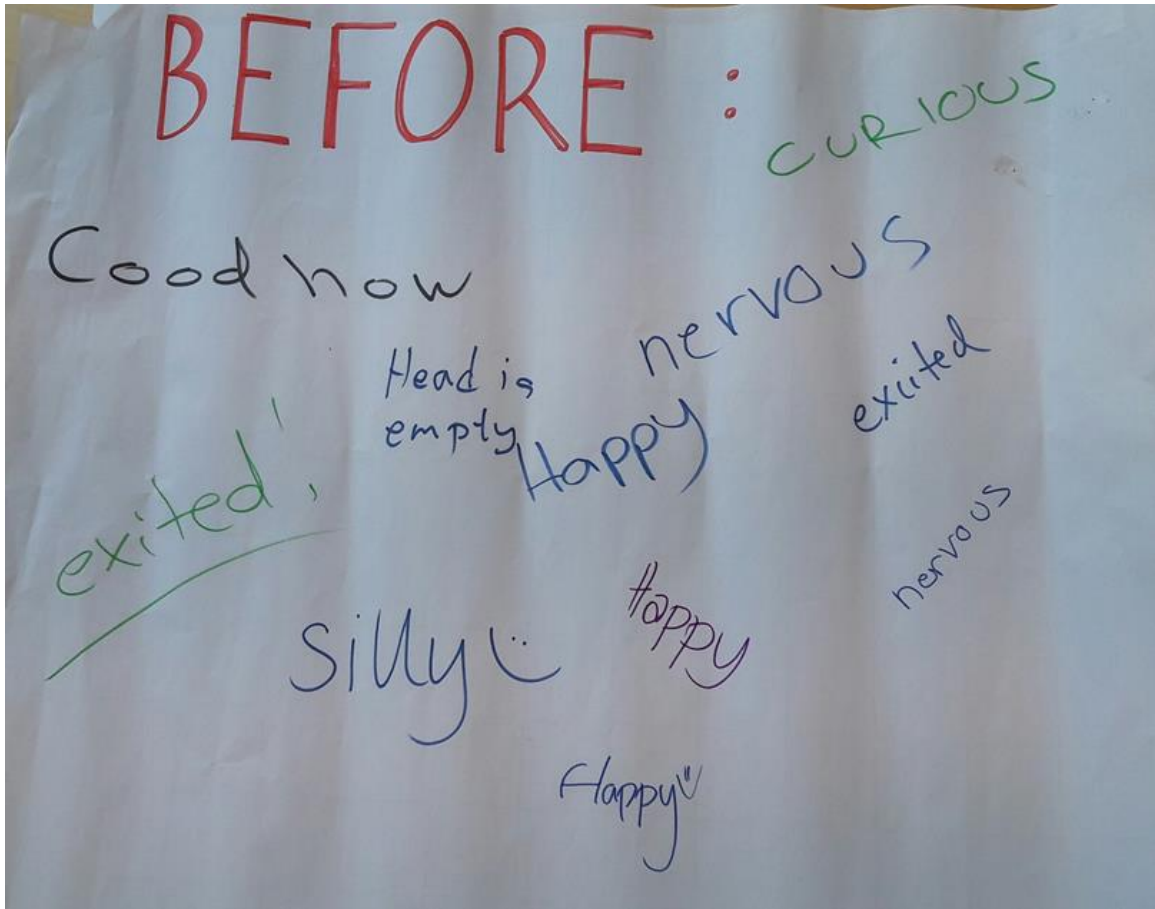 BEFORE :
CURIOUS
Cood now
nervous
Head is
empty
exiited
Happy
exited!
nervous
Happy
Silly
Happy